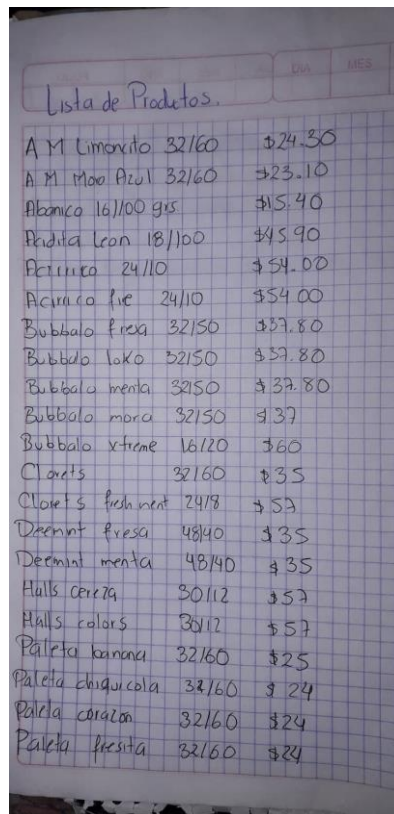 DIA MES
Lista de Productos.
A M Limoncito 32/60 $24.30
A M Moro Azul 32/60 $23.10
Abanico 16/100 grs $15.40
Acidita Leon 18/100 $45.90
24/10 $54.00
24/10 $54.00
Bubbalo fresa 32/50 $37.80
Bubbalo loko 32/50 $37.80
Bubbalo menta 32/50 $37.80
Bubbalo mora 32/50 $37
Bubbalo xtreme 16/20 $60
Clorets 32/60 $35
Clorets fresh ment 24/8 $57
Deemint fresa 48/40 $35
Deemint menta 48/40 $35
Halls cereza 30/12 $57
Halls colors 30/12 $57
Paleta banana 32/60 $25
Paleta chiquicola 32/60 $24
Paleta corazon 32/60 $24
Paleta fresita 32/60 $24